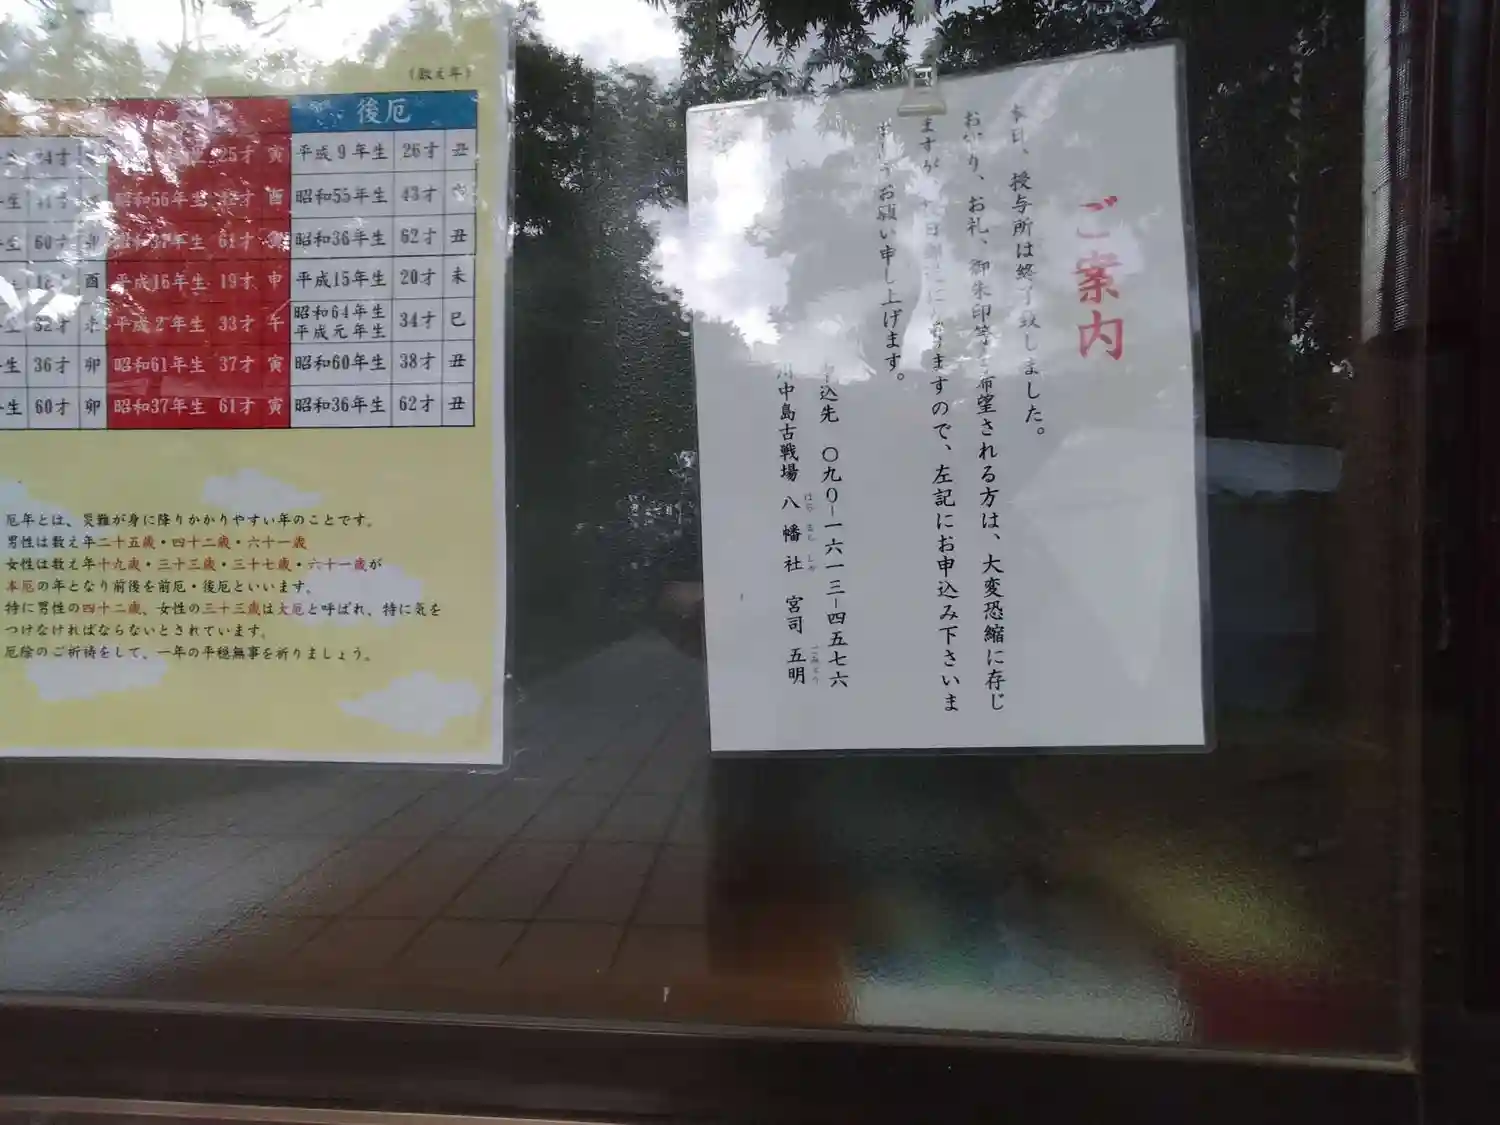 (数え年)
後厄
24才
25才 寅
平成9年生 26才 丑
昭和56年生 42才 酉
昭和55年生 43才
60才 卯
昭和37年生 61才 寅
昭和36年生 62才 丑
酉
平成16年生 19才 申
平成15年生 20才 未
32才 未
平成2年生 33才 午
昭和64年生
平成元年生
34才 巳
生 36才 卯
昭和61年生 37才 寅
昭和60年生 38才 丑
生 60才 卯
昭和37年生 61才 寅
昭和36年生 62才 丑
厄年とは、災難が身に降りかかりやすい年のことです。
男性は数え年二十五歳・四十二歳・六十一歳
女性は数え年十九歳・三十三歳・三十七歳・六十一歳が
本厄の年となり前後を前厄・後厄といいます。
特に男性の四十二歳、女性の三十三歳は大厄と呼ばれ、特に気を
つけなければならないとされています。
厄除のご祈祷をして、一年の平穏無事を祈りましょう。
ご案内
本日、授与所は終了致しました。
お守り、お礼、御朱印等を希望される方は、大変恐縮に存じ
ますが 日 ますので、左記にお申込み下さいま
お願い申し上げます。
申込先 〇九〇−一六一三−四五七六
川中島古戦場 八幡社 宮司 五明